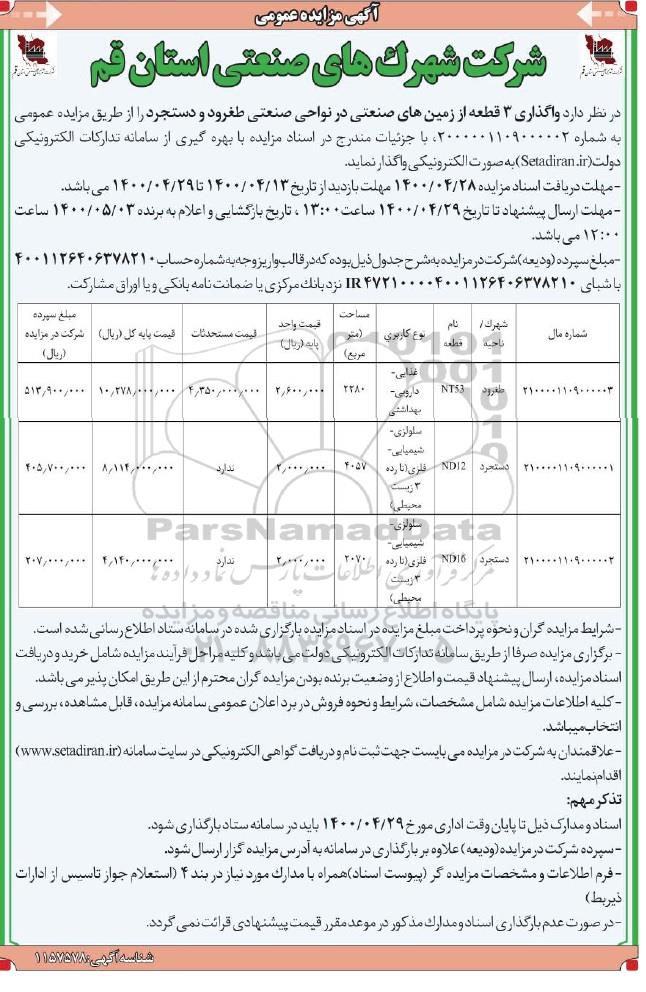 آگهی مزایده عمومی
شرکت شهرک های صنعتی استان قم
در نظر دارد واگذاری ۳ قطعه از زمین های صنعتی در نواحی صنعتی طغرود و دستجرد را از طریق مزایده عمومی
به شماره ۲۰۰۰۰۰۱۱۰۹۰۰۰۰۰۲، با جزئیات مندرج در اسناد مزایده با بهره گیری از سامانه تدارکات الکترونیکی
دولت(Setadiran.ir)به صورت الکترونیکی واگذار نماید.
-مهلت دریافت اسناد مزایده ۱۴۰۰/۰۴/۲۸ مهلت بازدید از تاریخ ۱۴۰۰/۰۴/۱۳ تا ۱۴۰۰/۰۴/۲۹ می باشد.
-مهلت ارسال پیشنهاد تا تاریخ ۱۴۰۰/۰۴/۲۹ ساعت ۱۳:۰۰ ، تاریخ بازگشایی و اعلام به برنده ۱۴۰۰/۰۵/۰۳ ساعت
۱۲:۰۰ می باشد.
-مبلغ سپرده (ودیعه)شرکت در مزایده به شرح جدول ذیل بوده که در قالب واریز وجه به شماره حساب ۴۰۰۱۱۲۶۴۰۶۳۷۸۲۱۰
با شبای IR ۴۷۲۱۰۰۰۰۴۰۰۱۱۲۶۴۰۶۳۷۸۲۱۰ نزد بانک مرکزی یا ضمانت نامه بانکی و یا اوراق مشارکت.
شماره مال | شهرک/ ناحیه | نام قطعه | نوع کاربری | مساحت (متر مربع) | قیمت واحد پایه (ریال) | قیمت مستحدثات | قیمت پایه کل (ریال) | مبلغ سپرده شرکت در مزایده (ریال)
۲۱۰۰۰۰۱۱۰۹۰۰۰۰۰۳ | طغرود | NT53 | غذایی- دارویی- بهداشتی | ۲۲۸۰ | ۲,۶۰۰,۰۰۰ | ۴,۳۵۰,۰۰۰,۰۰۰ | ۱۰,۲۷۸,۰۰۰,۰۰۰ | ۵۱۳,۹۰۰,۰۰۰
۲۱۰۰۰۰۱۱۰۹۰۰۰۰۰۱ | دستجرد | ND12 | سلولزی- شیمیایی- فلزی(تا رده ۳ زیست محیطی) | ۴۰۵۷ | ۲,۰۰۰,۰۰۰ | ندارد | ۸,۱۱۴,۰۰۰,۰۰۰ | ۴۰۵,۷۰۰,۰۰۰
۲۱۰۰۰۰۱۱۰۹۰۰۰۰۰۲ | دستجرد | ND16 | سلولزی- شیمیایی- فلزی(تا رده ۳ زیست محیطی) | ۲۰۷۰ | ۲,۰۰۰,۰۰۰ | ندارد | ۴,۱۴۰,۰۰۰,۰۰۰ | ۲۰۷,۰۰۰,۰۰۰
ParsNamadData
مرکز فرآوری اطلاعات پارس نماد داده ها
پایگاه اطلاع رسانی مناقصه و مزایده
-شرایط مزایده گران و نحوه پرداخت مبلغ مزایده در اسناد مزایده بارگزاری شده در سامانه ستاد اطلاع رسانی شده است.
- برگزاری مزایده صرفا از طریق سامانه تدارکات الکترونیکی دولت می باشد و کلیه مراحل فرآیند مزایده شامل خرید و دریافت
اسناد مزایده، ارسال پیشنهاد قیمت و اطلاع از وضعیت برنده بودن مزایده گران محترم از این طریق امکان پذیر می باشد.
-کلیه اطلاعات مزایده شامل مشخصات، شرایط و نحوه فروش در برد اعلان عمومی سامانه مزایده، قابل مشاهده، بررسی و
انتخاب میباشد.
-علاقمندان به شرکت در مزایده می بایست جهت ثبت نام و دریافت گواهی الکترونیکی در سایت سامانه (www.setadiran.ir)
اقدام نمایند.
تذکر مهم:
اسناد و مدارک ذیل تا پایان وقت اداری مورخ ۱۴۰۰/۰۴/۲۹ باید در سامانه ستاد بارگذاری شود.
-سپرده شرکت در مزایده (ودیعه) علاوه بر بارگذاری در سامانه به آدرس مزایده گزار ارسال شود.
-فرم اطلاعات و مشخصات مزایده گر (پیوست اسناد)همراه با مدارک مورد نیاز در بند ۴ (استعلام جواز تاسیس از ادارات
ذیربط)
-در صورت عدم بارگذاری اسناد و مدارک مذکور در موعد مقرر قیمت پیشنهادی قرائت نمی گردد.
شناسه آگهی: ۱۱۵۷۵۷۸